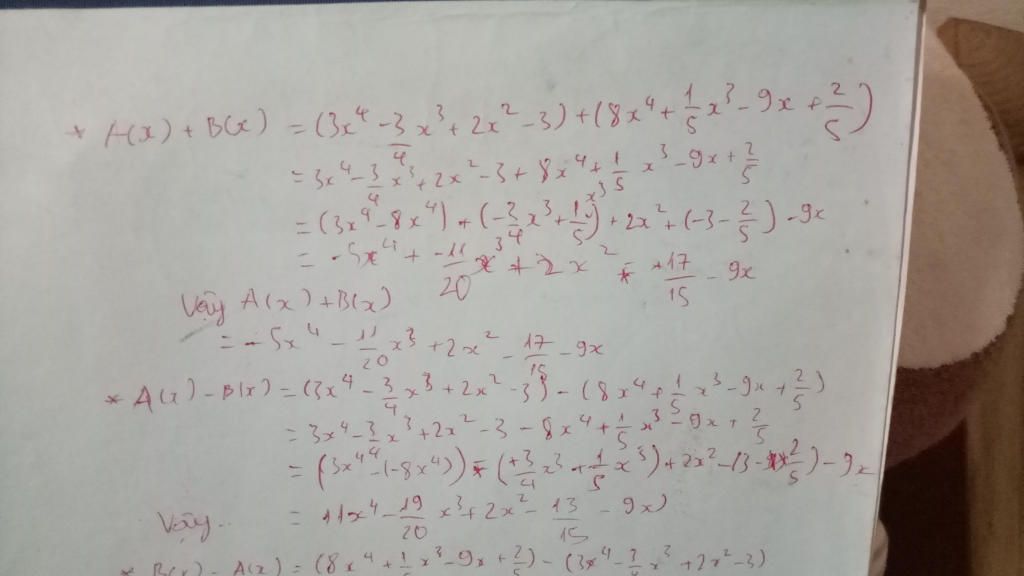 * A(x) + B(x) = (3x⁴ - 3/4 x³ + 2x² - 3) + (8x⁴ + 1/5 x³ - 9x + 2/5)
= 3x⁴ - 3/4 x³ + 2x² - 3 + 8x⁴ + 1/5 x³ - 9x + 2/5
= (3x⁴ - 8x⁴) + (-3/4 x³ + 1/5 x³) + 2x² + (-3 - 2/5) - 9x
= - 5x⁴ + -11/20 x³ + 2x² - 17/15 - 9x
Vậy A(x) + B(x)
= - 5x⁴ - 11/20 x³ + 2x² - 17/15 - 9x
* A(x) - B(x) = (3x⁴ - 3/4 x³ + 2x² - 3) - (8x⁴ + 1/5 x³ - 9x + 2/5)
= 3x⁴ - 3/4 x³ + 2x² - 3 - 8x⁴ + 1/5 x³ - 9x + 2/5
= (3x⁴ - (-8x⁴)) - (+3/4 x³ + 1/5 x³) + 2x² - (3 - 2/5) - 9x
Vậy = 11x⁴ - 19/20 x³ + 2x² - 13/15 - 9x)
* B(x) - A(x) = (8x⁴ + 1/5 x³ - 9x + 2/5) - (3x⁴ - 3/4 x³ + 2x² - 3)